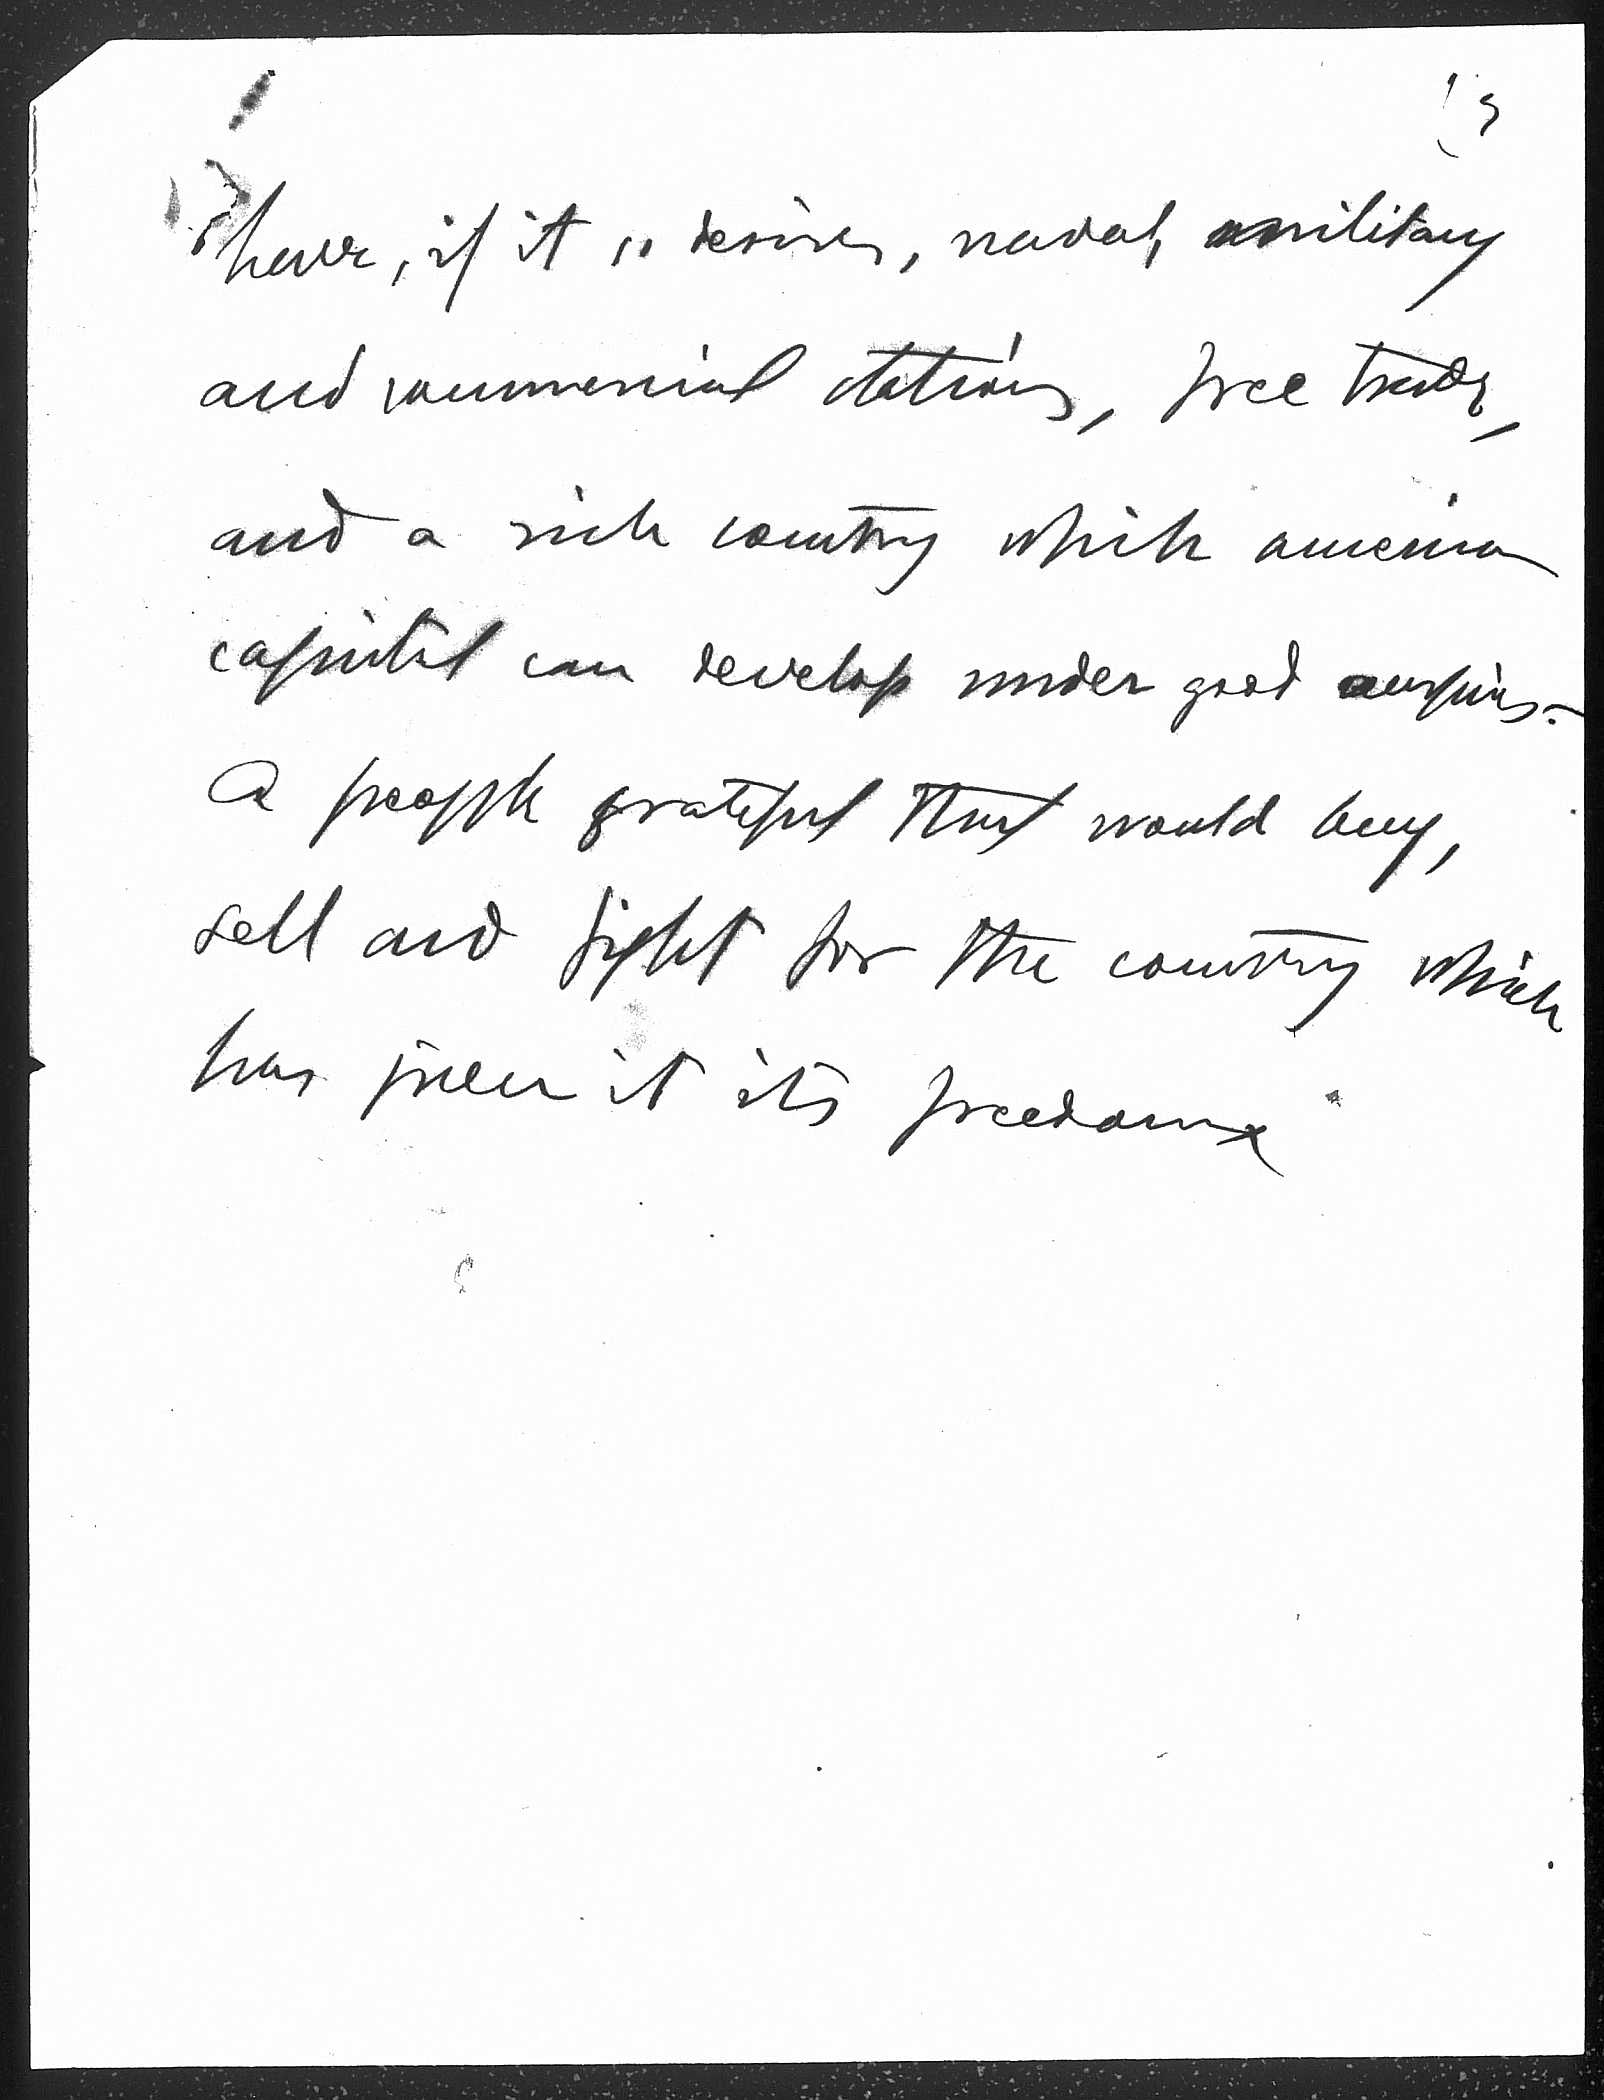 have, if it so desires, naval, military
and commercial stations, free trade,
and a rich country which american
capital can develop under good auspices.
A people grateful that would buy,
sell and fight for the country which
has given it its freedom